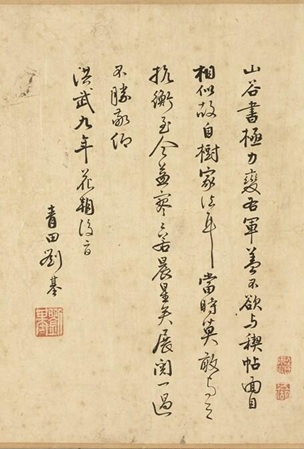 山谷書極力變右軍蓋不欲与稧帖面目
相似故自樹家法耳當時莫敢與之
抗衡至今益寥々若晨星矣展閱一過
不勝敬仰
洪武九年花朝後一日
青田劉基